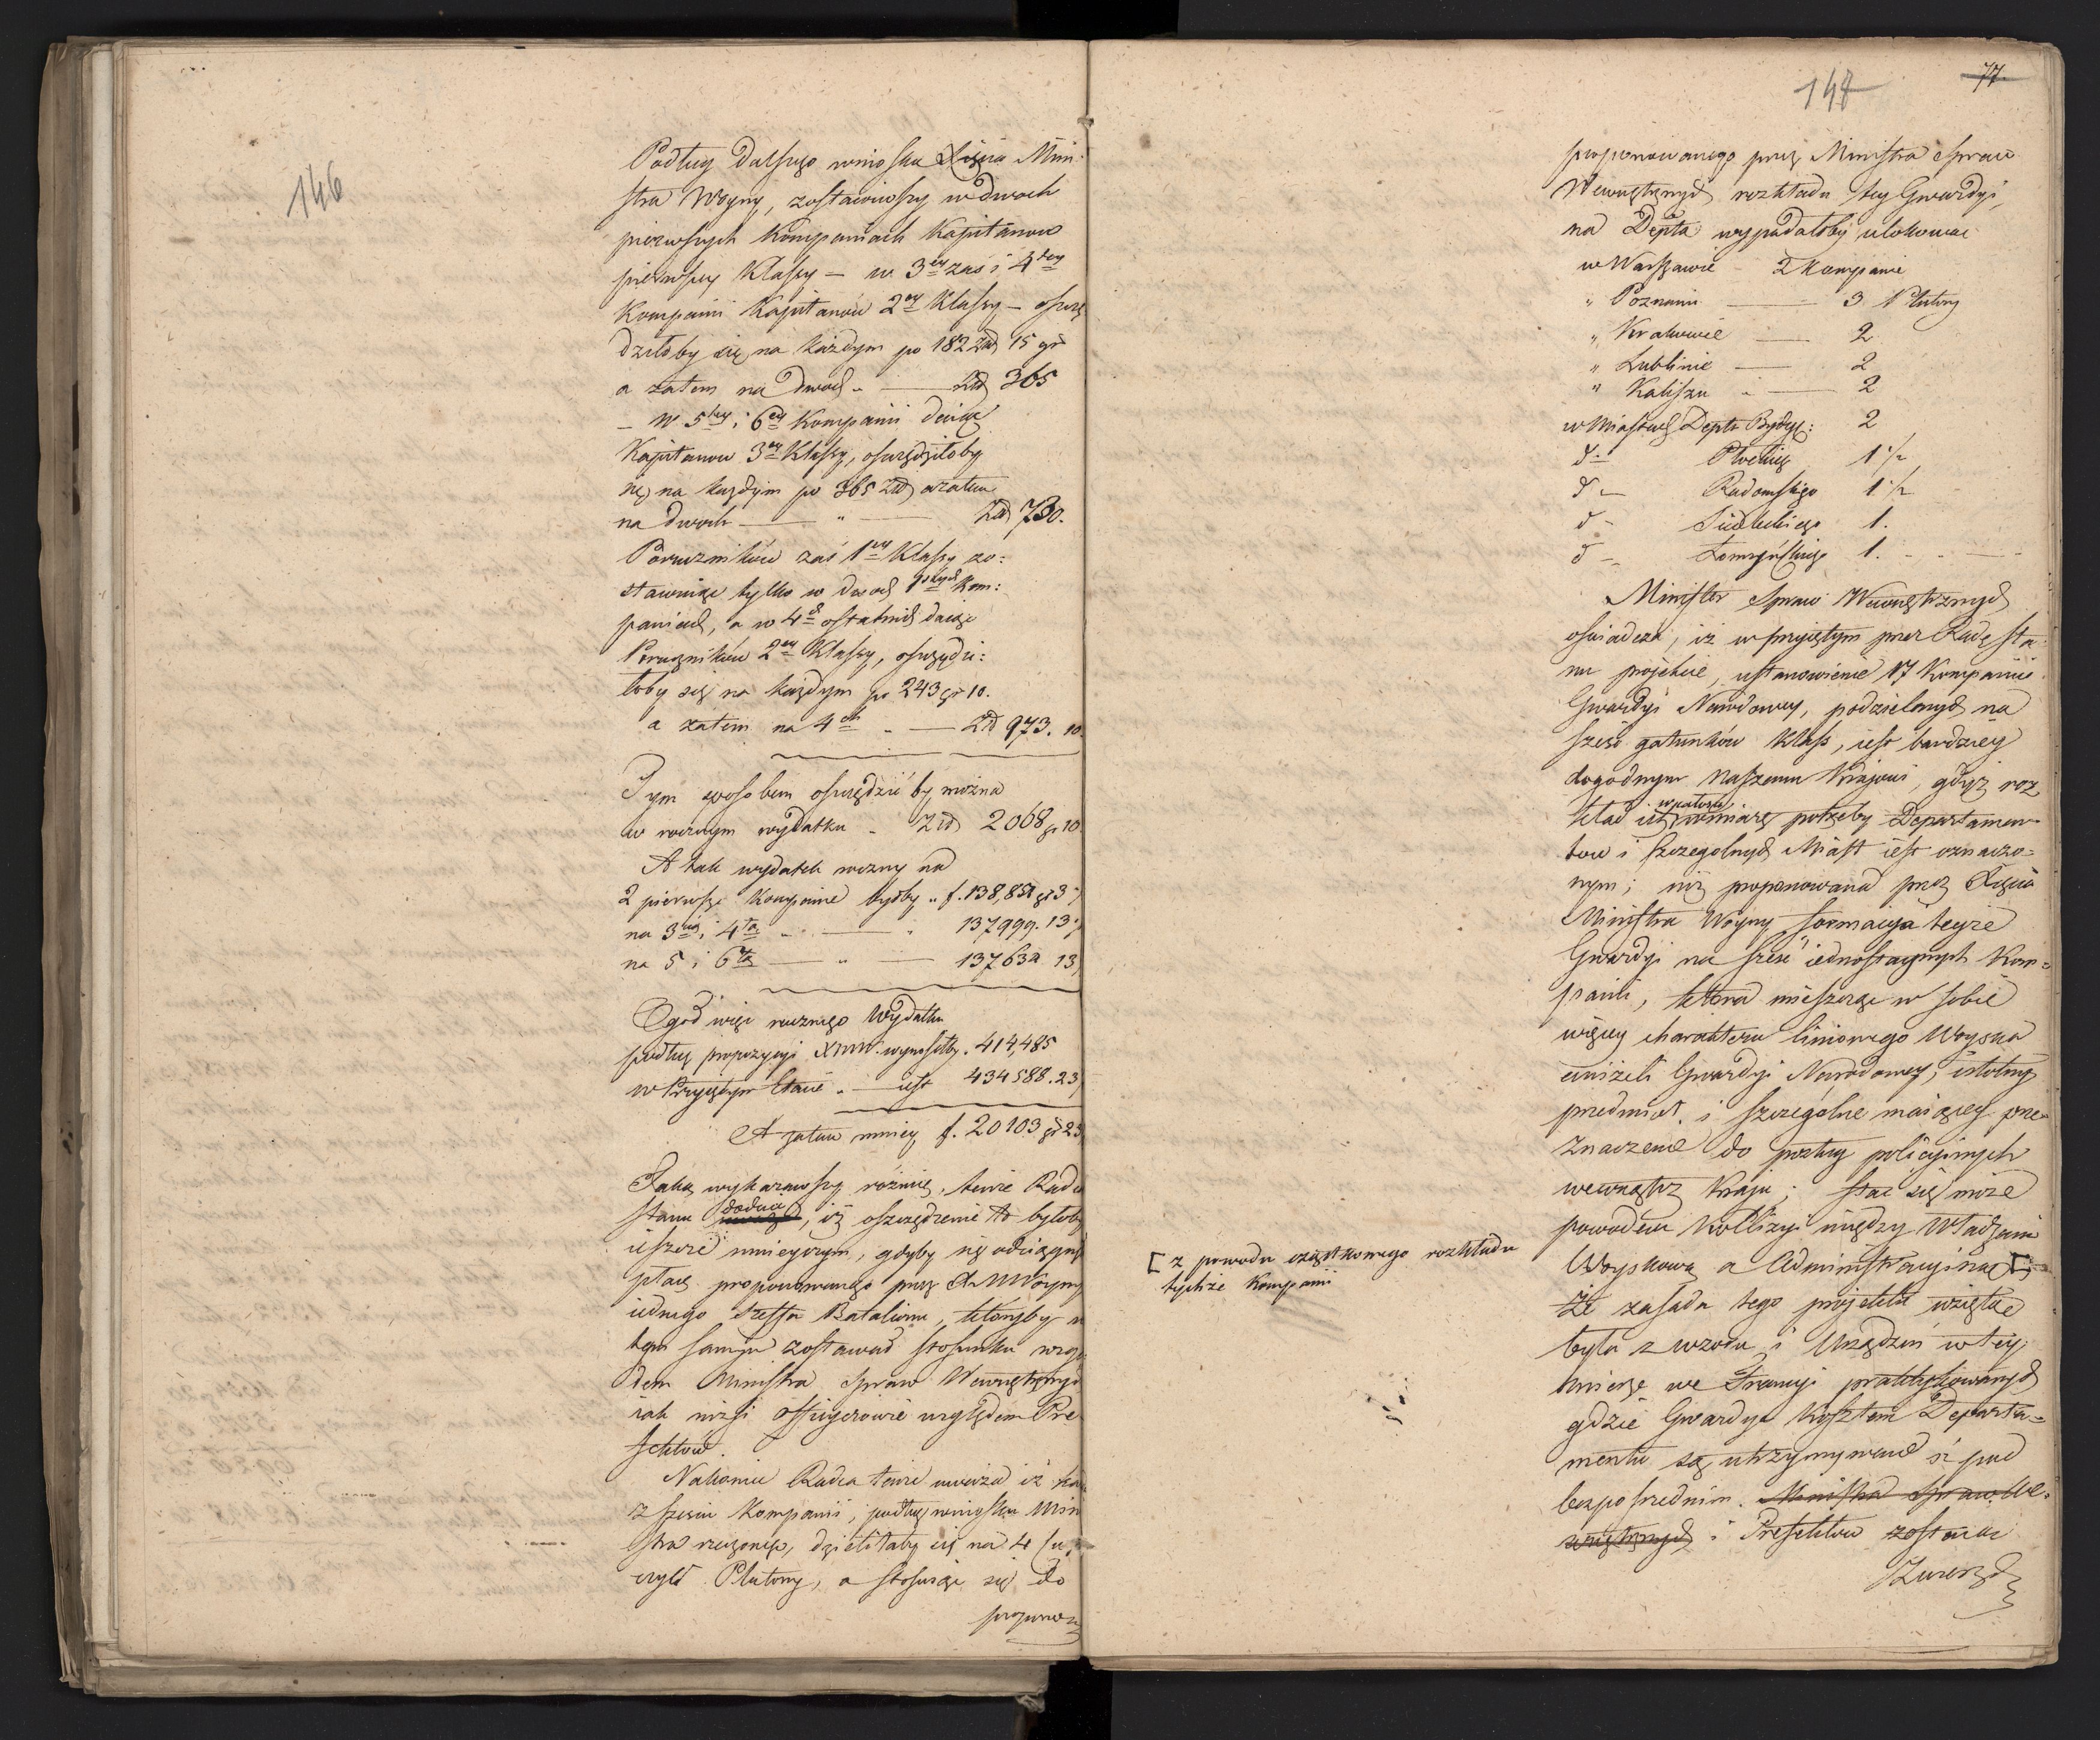 146
Podług dalszego wniosku Xięcia Mini-
stra Woyny, zostawiwszy w dwoch
pierwszych Kompaniach Kapitanow
pierwszey Klassy — w 3ey zaś i 4tey
Kompanii Kapitanów 2ey Klassy — oszczę
dziłoby się na każdym po 182 Złł 15 gr
a zatem na dwoch " — Złł 365
— w 5tey i 6ey Kompanii daiąc
Kapitanow 3ey Klassy, oszczędziłoby
się na każdym po 365 Złł a zatem
na dwoch — " — Złł 730.
Poruczników zaś 1ey Klassy zo=
stawuiąc tylko w dwoch 1szych Kom=
paniach, a w 4ch ostatnich daiąc
Poruczników 2ey Klassy, oszczędzi=
łoby się na każdym po 243 gr 10.
a zatem na 4ch " — Złł 973. 10
Tym sposobem oszczędzić by można
w rocznym wydatku " Złł 2068 gr 10
A tak wydatek roczny na
2 pierwsze Kompanie byłby " f. 138,852 gr 3
na 3cią i 4tą " — " 137999. 13
na 5 i 6tą — " — 137632 13
Ogół więc rocznego Wydatku
podług propozycyi XMW. wynosiłby . 414,485
w Przyiętym Etacie " — iest 434588. 23
A zatem mniey f. 20103 gr 23
Taką wykazawszy różnicę, tenże Radca
Stanu dodaie, iż oszczędzenie to byłoby
ieszcze mnieyszym, gdyby się odciągnęła
płaca proponowanego przez X. M Woyny
iednego Szeffa Batalionu, któryby w
tym samym zostawał stosunku wzglę
dem Ministra Spraw Wewnętrznych
iak niżsi officerowie względem Pre
fektów.
Nakoniec Radca tenże uważa iż każ
z sześciu Kompanii, podług wniosku Mini
stra rzeczonego, dzieliłaby się na 4
czyli Plutony, a stosuiąc się do
proponow
77.
147
proponowanego przez Ministra Spraw
Wewnętrznych rozkładu tey Gwardyi,
na Depta wypadałoby ulokować
w Warszawie — 2 Kompanie
" Poznaniu — 3 Plutony
" Krakowie — 2
" Lublinie — 2
" Kaliszu " — 2
w Miastach Deptu Bydg: 2
d — Płockiego 1 1/2
d — Radomskiego 1 1/2
d — Siedleckiego 1.
d — Łomżyńskiego 1. — —
Minister Spraw Wewnętrznych
oświadcza, iż w przyiętym przez Radę Sta
nu projekcie, ustanowienie 17 Kompanii
Gwardyi Narodowey, podzielonych na
sześć gatunków Klass, iest bardziey
dogodnym naszemu Kraiowi, gdyż roz
kład ich w miarę potrzeby Departamen
tow i szczególnych Miast iest oznaczo=
nym; niż proponowana przez Xięcia
Ministra Woyny formacya teyże
Gwardyi na sześć iednostaynych Kom=
panii, która mieszcząc w sobie
więcey charakteru liniowego Woyska
aniżeli Gwardyi Narodowey, istotny
przedmiot i szczególne maiącey prze=
znaczenie do posług policyinych
wewnątrz Kraju; stać się może
powodem kollizyi między Władzami
Woyskową a Administracyiną [
[ z powodu cząstkowego rozkładu
tychże Kompanii
Że zasada tego projektu wzięta
była z wzoru i Urządzeń w tey
mierze we Francyi praktykowanych
gdzie Gwardye kosztem Departa=
mentu są utrzymywane i pod
bezpośrednim. Ministra Spraw We=
wnętrznych i Prefektow zostaiąc